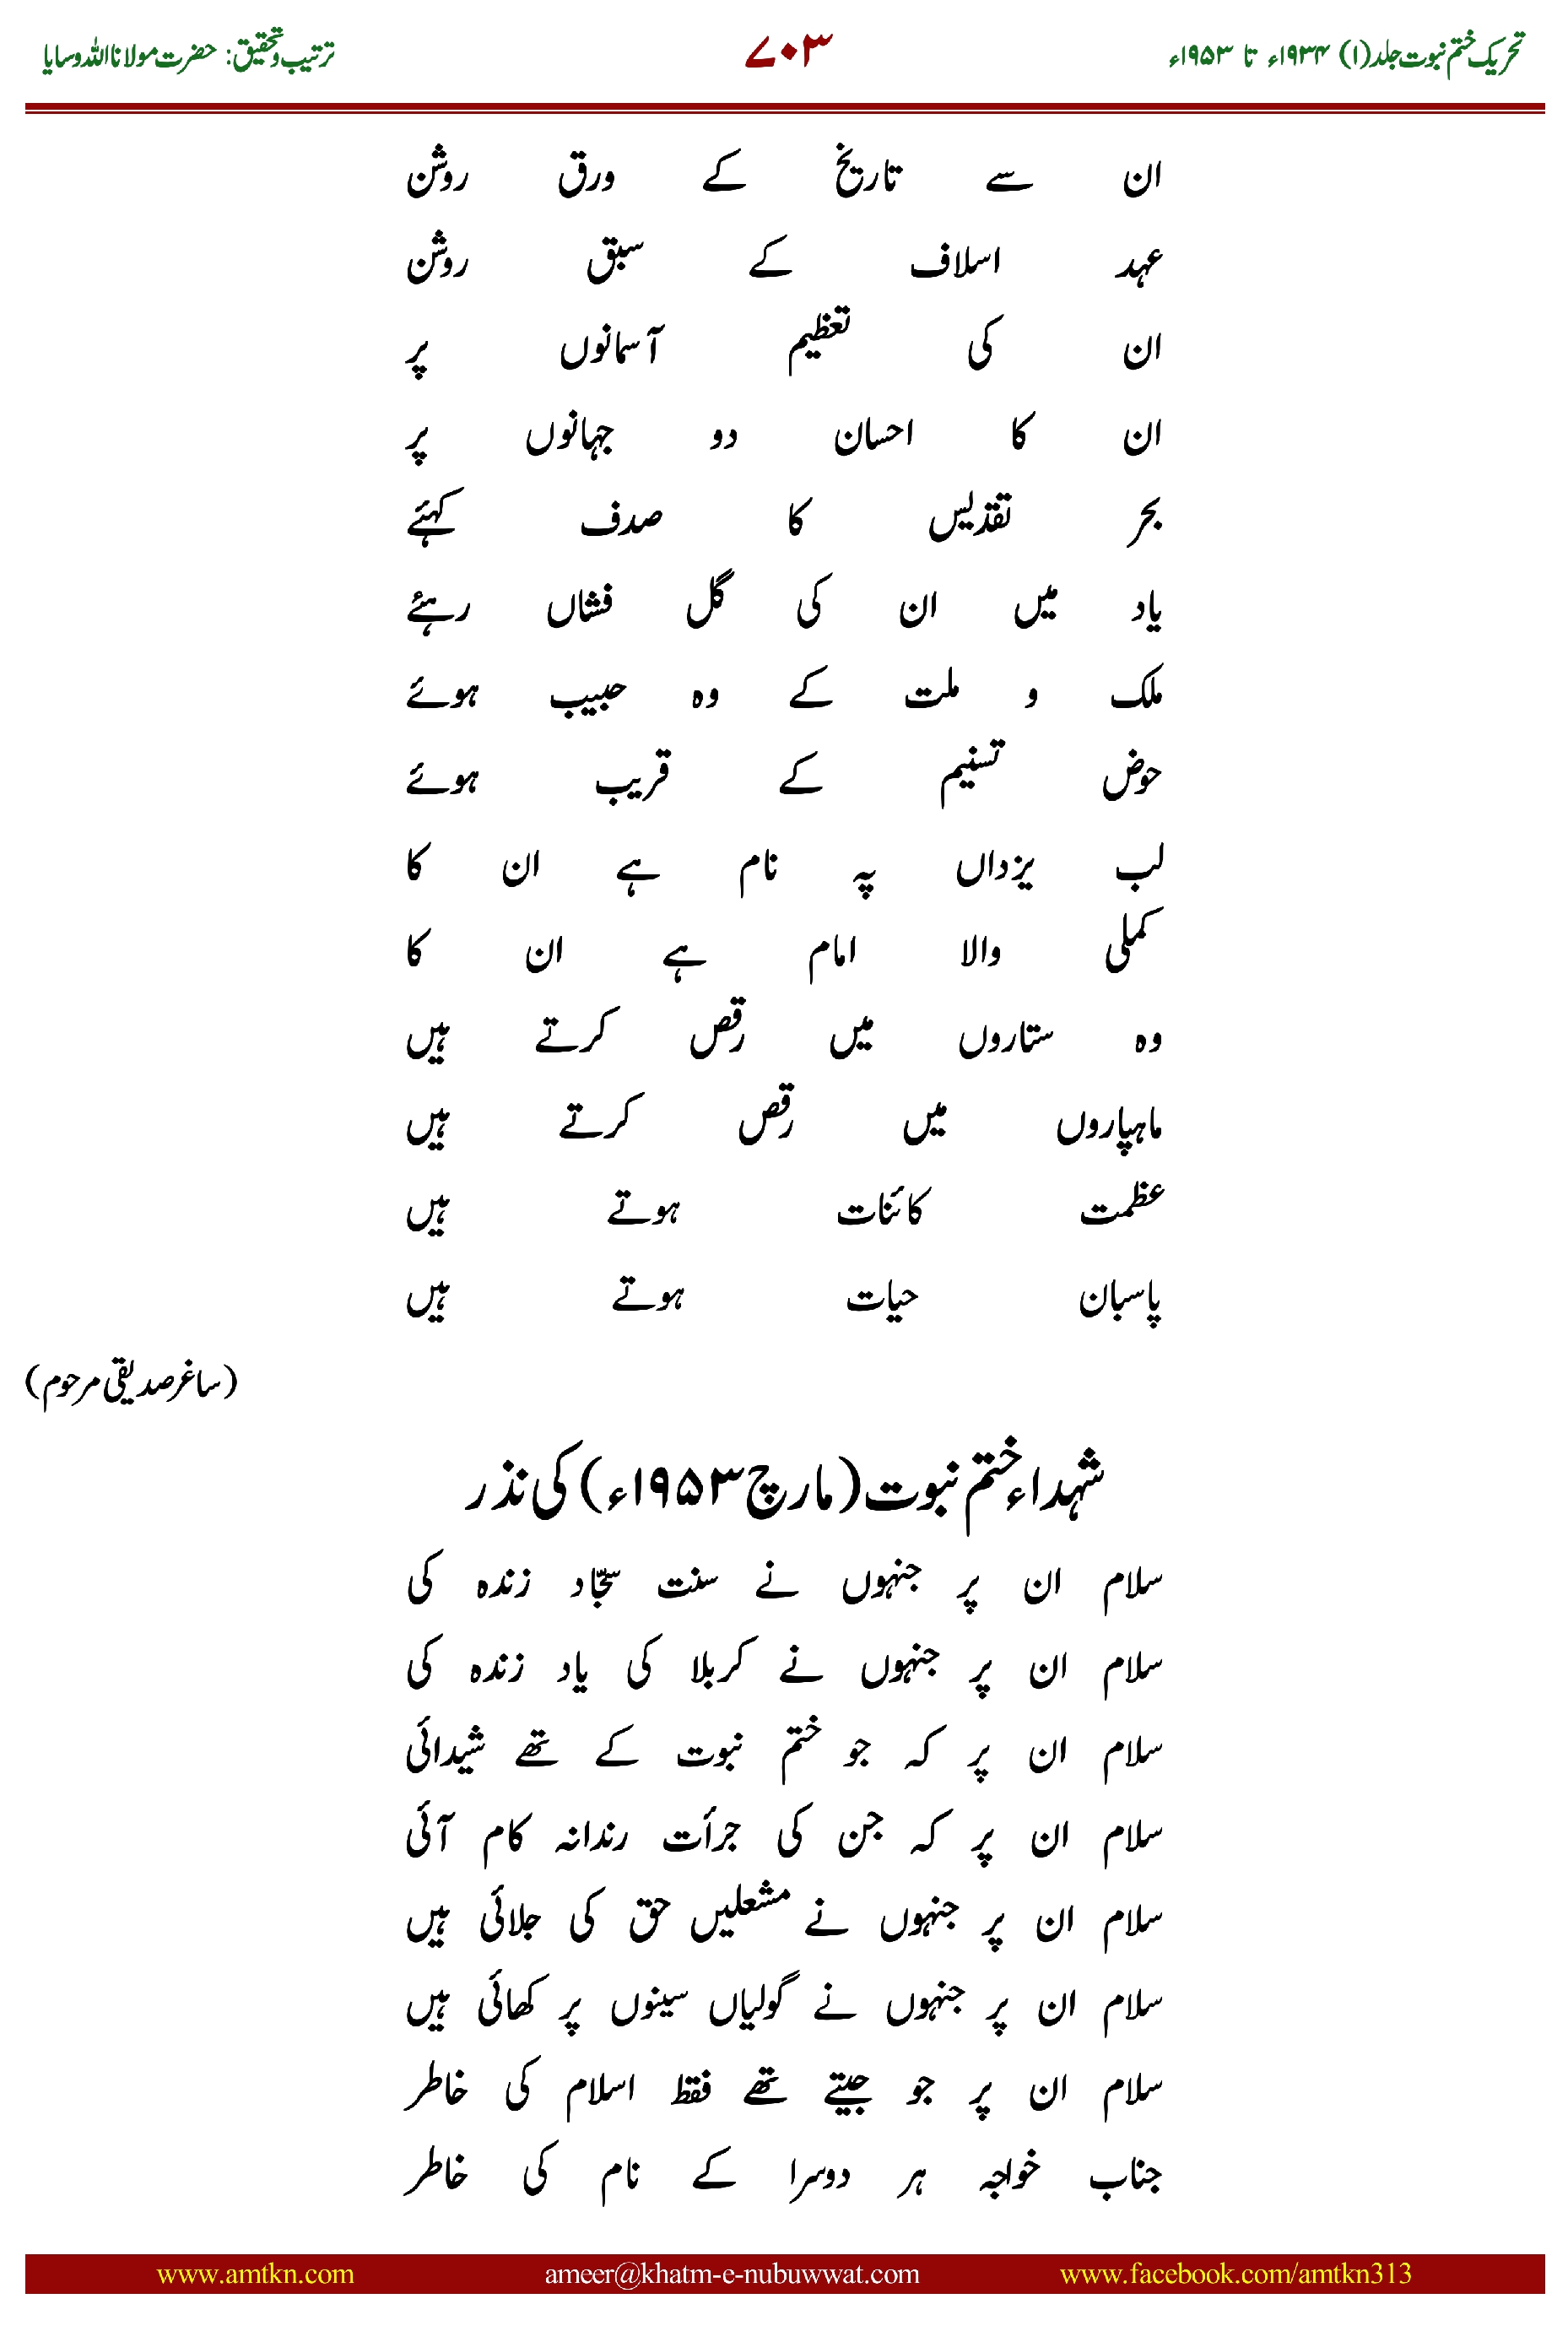 تحریک ختم نبوت جلد(۱) ۱۹۳۴ء تا ۱۹۵۳ء ۷۰۳ ترتیب و تحقیق: حضرت مولانا اللہ وسایا
ان سے تاریخ کے ورق روشن
عہد اسلاف کے سبق روشن
ان کی تعظیم آسمانوں پر
ان کا احسان دو جہانوں پر
بحر تقدیس کا صدف کہئے
یاد میں ان کی گل فشاں رہئے
ملک و ملت کے وہ حبیب ہوئے
حوض تسنیم کے قریب ہوئے
لب یزداں پہ نام ہے ان کا
کملی والا امام ہے ان کا
وہ ستاروں میں رقص کرتے ہیں
ماہپاروں میں رقص کرتے ہیں
عظمت کائنات ہوتے ہیں
پاسبان حیات ہوتے ہیں
(ساغر صدیقی مرحوم)
شہداء ختم نبوت (مارچ ۱۹۵۳ء) کی نذر
سلام ان پر جنہوں نے سنت سجّاد زندہ کی
سلام ان پر جنہوں نے کربلا کی یاد زندہ کی
سلام ان پر کہ جو ختم نبوت کے تھے شیدائی
سلام ان پر کہ جن کی جرأت رندانہ کام آئی
سلام ان پر جنہوں نے مشعلیں حق کی جلائی ہیں
سلام ان پر جنہوں نے گولیاں سینوں پر کھائی ہیں
سلام ان پر جو جیتے تھے فقط اسلام کی خاطر
جناب خواجہ ہر دوسرا کے نام کی خاطر
www.amtkn.com ameer@khatm-e-nubuwwat.com www.facebook.com/amtkn313